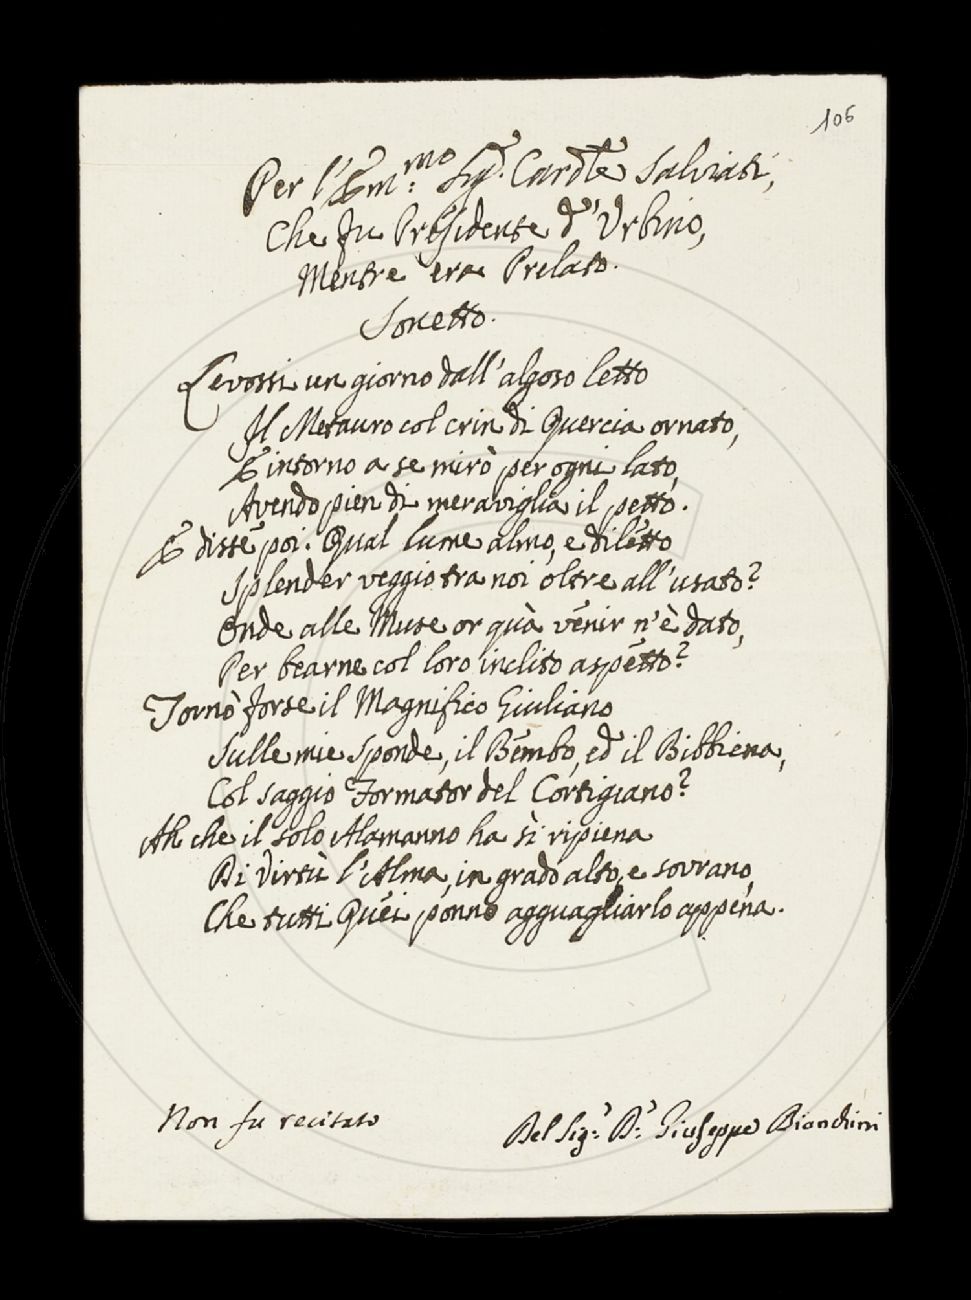 106
Per l'Em:mo Sigr. Cardle Salviati,
Che fu Presidente d'Urbino,
Mentre era Prelato.
Sonetto.
Levossi un giorno dall'algoso letto
Il Metauro col crin di Quercia ornato,
E intorno a se mirò per ogni lato,
Avendo pien di meraviglia il petto.
E disse poi: Qual lume almo, e diletto
Splender veggio tra noi oltre all'usato?
Onde alle Muse or quà venir n'è dato,
Per bearne col loro inclito aspetto?
Tornò forse il Magnifico Giuliano
Sulle mie sponde, il Bembo, ed il Bibbiena,
Col saggio Formator del Cortigiano?
Ah che il solo Alamanno ha sì ripiena
Di Virtù l'Alma, in grado alto, e sovrano,
Che tutti Quei ponno agguagliarlo appena.
Non fu recitato
Del Sig:r D:r Giuseppe Bianchini